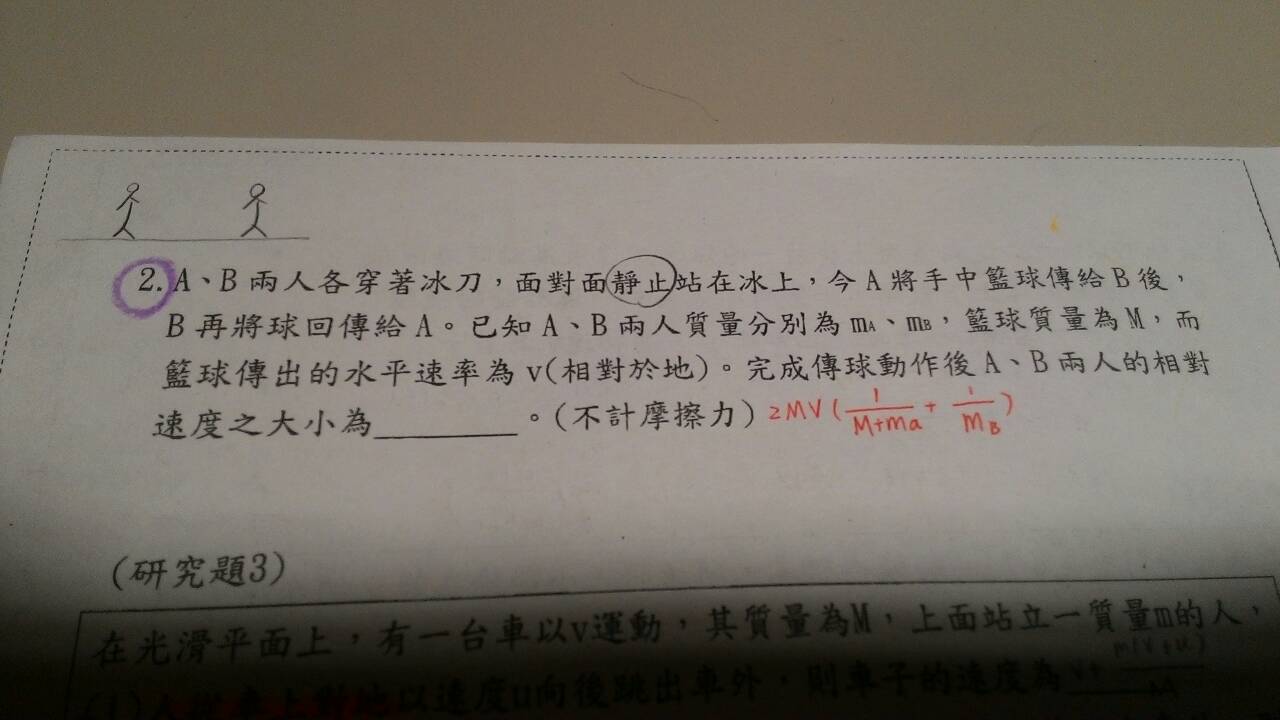 2. A、B 兩人各穿著冰刀，面對面靜止站在冰上，今 A 將手中籃球傳給 B 後，
B 再將球回傳給 A。已知 A、B 兩人質量分別為 mA、mB，籃球質量為 M，而
籃球傳出的水平速率為 v(相對於地)。完成傳球動作後 A、B 兩人的相對
速度之大小為________。(不計摩擦力) 2MV(1/(M+ma) + 1/mB)
(研究題3)
在光滑平面上，有一台車以v運動，其質量為M，上面站立一質量m的人，
以速度u向後跳出車外，則車子的速度為